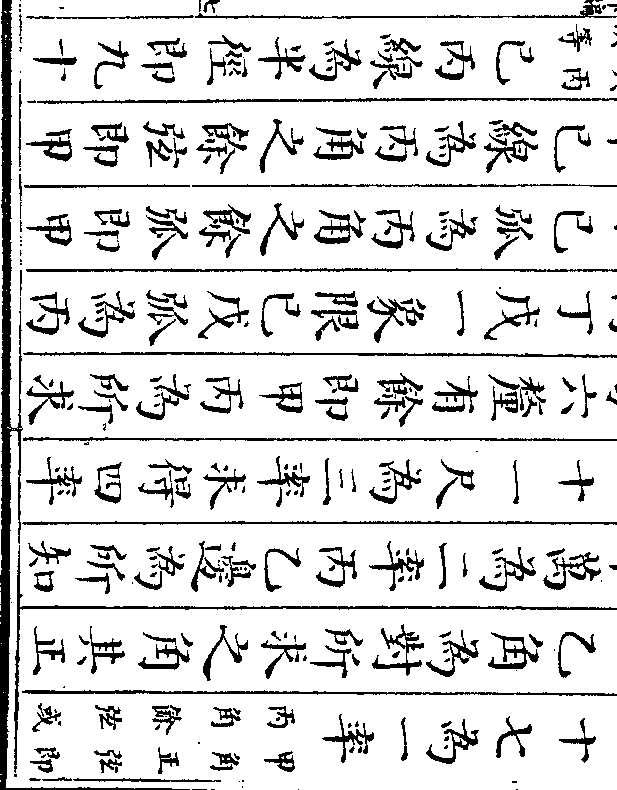 十七為一率甲角正弦即丙角餘弦或
乙角為對所求之角其正
萬為二率丙乙邊為所知
十一尺為三率求得四率
六釐有餘即甲丙為所求
丁戊一象限己戊弧為丙
己弧為丙角之餘弧即甲
己線為丙角之餘弦即甲
丙等己丙線為半徑即九十